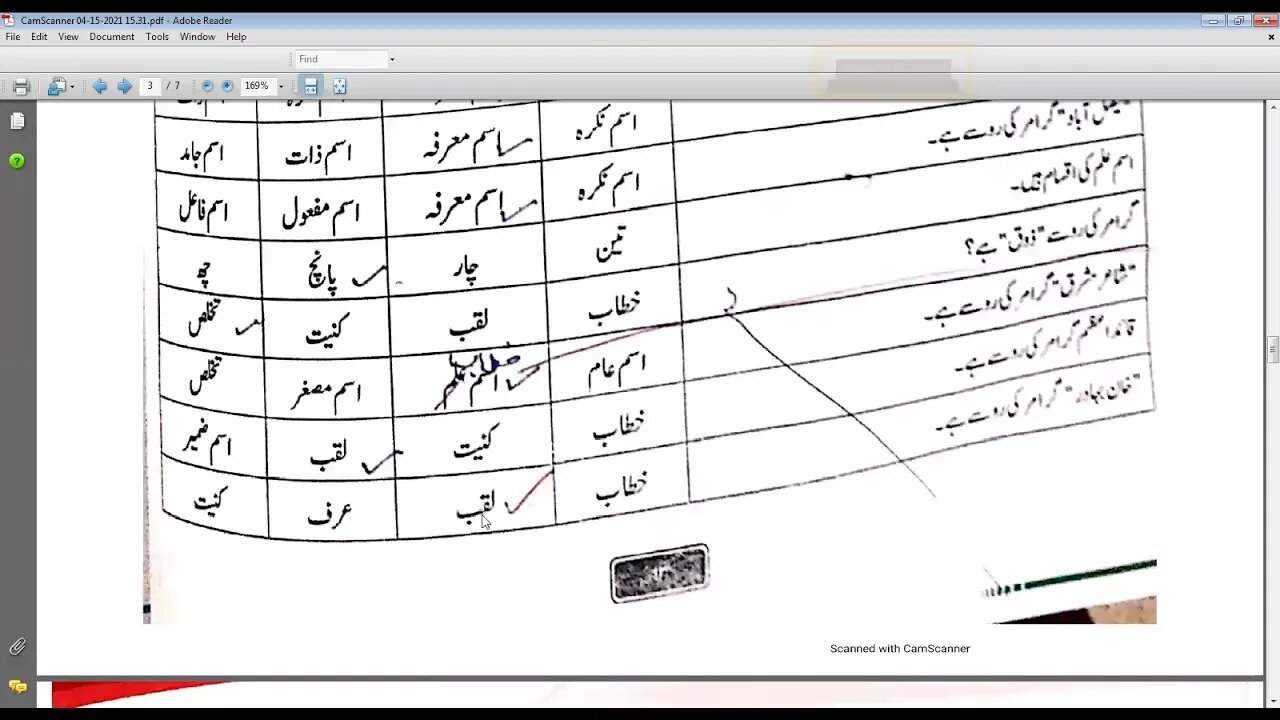 CamScanner 04-15-2021 15.31.pdf - Adobe Reader
File Edit View Document Tools Window Help
Find
3 / 7 169%
آباد" گرامر کی رو سے ہے۔ اسم نکرہ اسم معرفہ اسم ذات اسم جامد
اسم نکرہ اسم معرفہ اسم مفعول اسم فاعل
اسم علم کی اقسام ہیں۔ تین چار پانچ چھ
گرامر کی رو سے "ذوق" ہے؟ خطاب لقب کنیت تخلص
خطاب
"شاعر مشرق" گرامر کی رو سے ہے۔ اسم عام اسم علم اسم مصغر تخلص
قائداعظم گرامر کی رو سے ہے۔ خطاب کنیت لقب اسم ضمیر
"خان بہادر" گرامر کی رو سے ہے۔ خطاب لقب عرف کنیت
Scanned with CamScanner